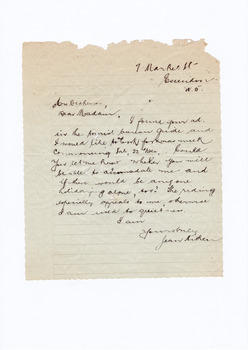 7 Market St
Essendon
W. 5.
Dear Madam,
I found your ad.
in the tourist bureau guide and
I would like to book for one week
commencing Sat. 22 Nov. Could
you let me know whether you will
be able to accomodate me and
if there would be anyone
holidaying alone, too? The riding
especially appeals to me, otherwise
I am used to quietness.
I am
Yours truly
Jean Aitken